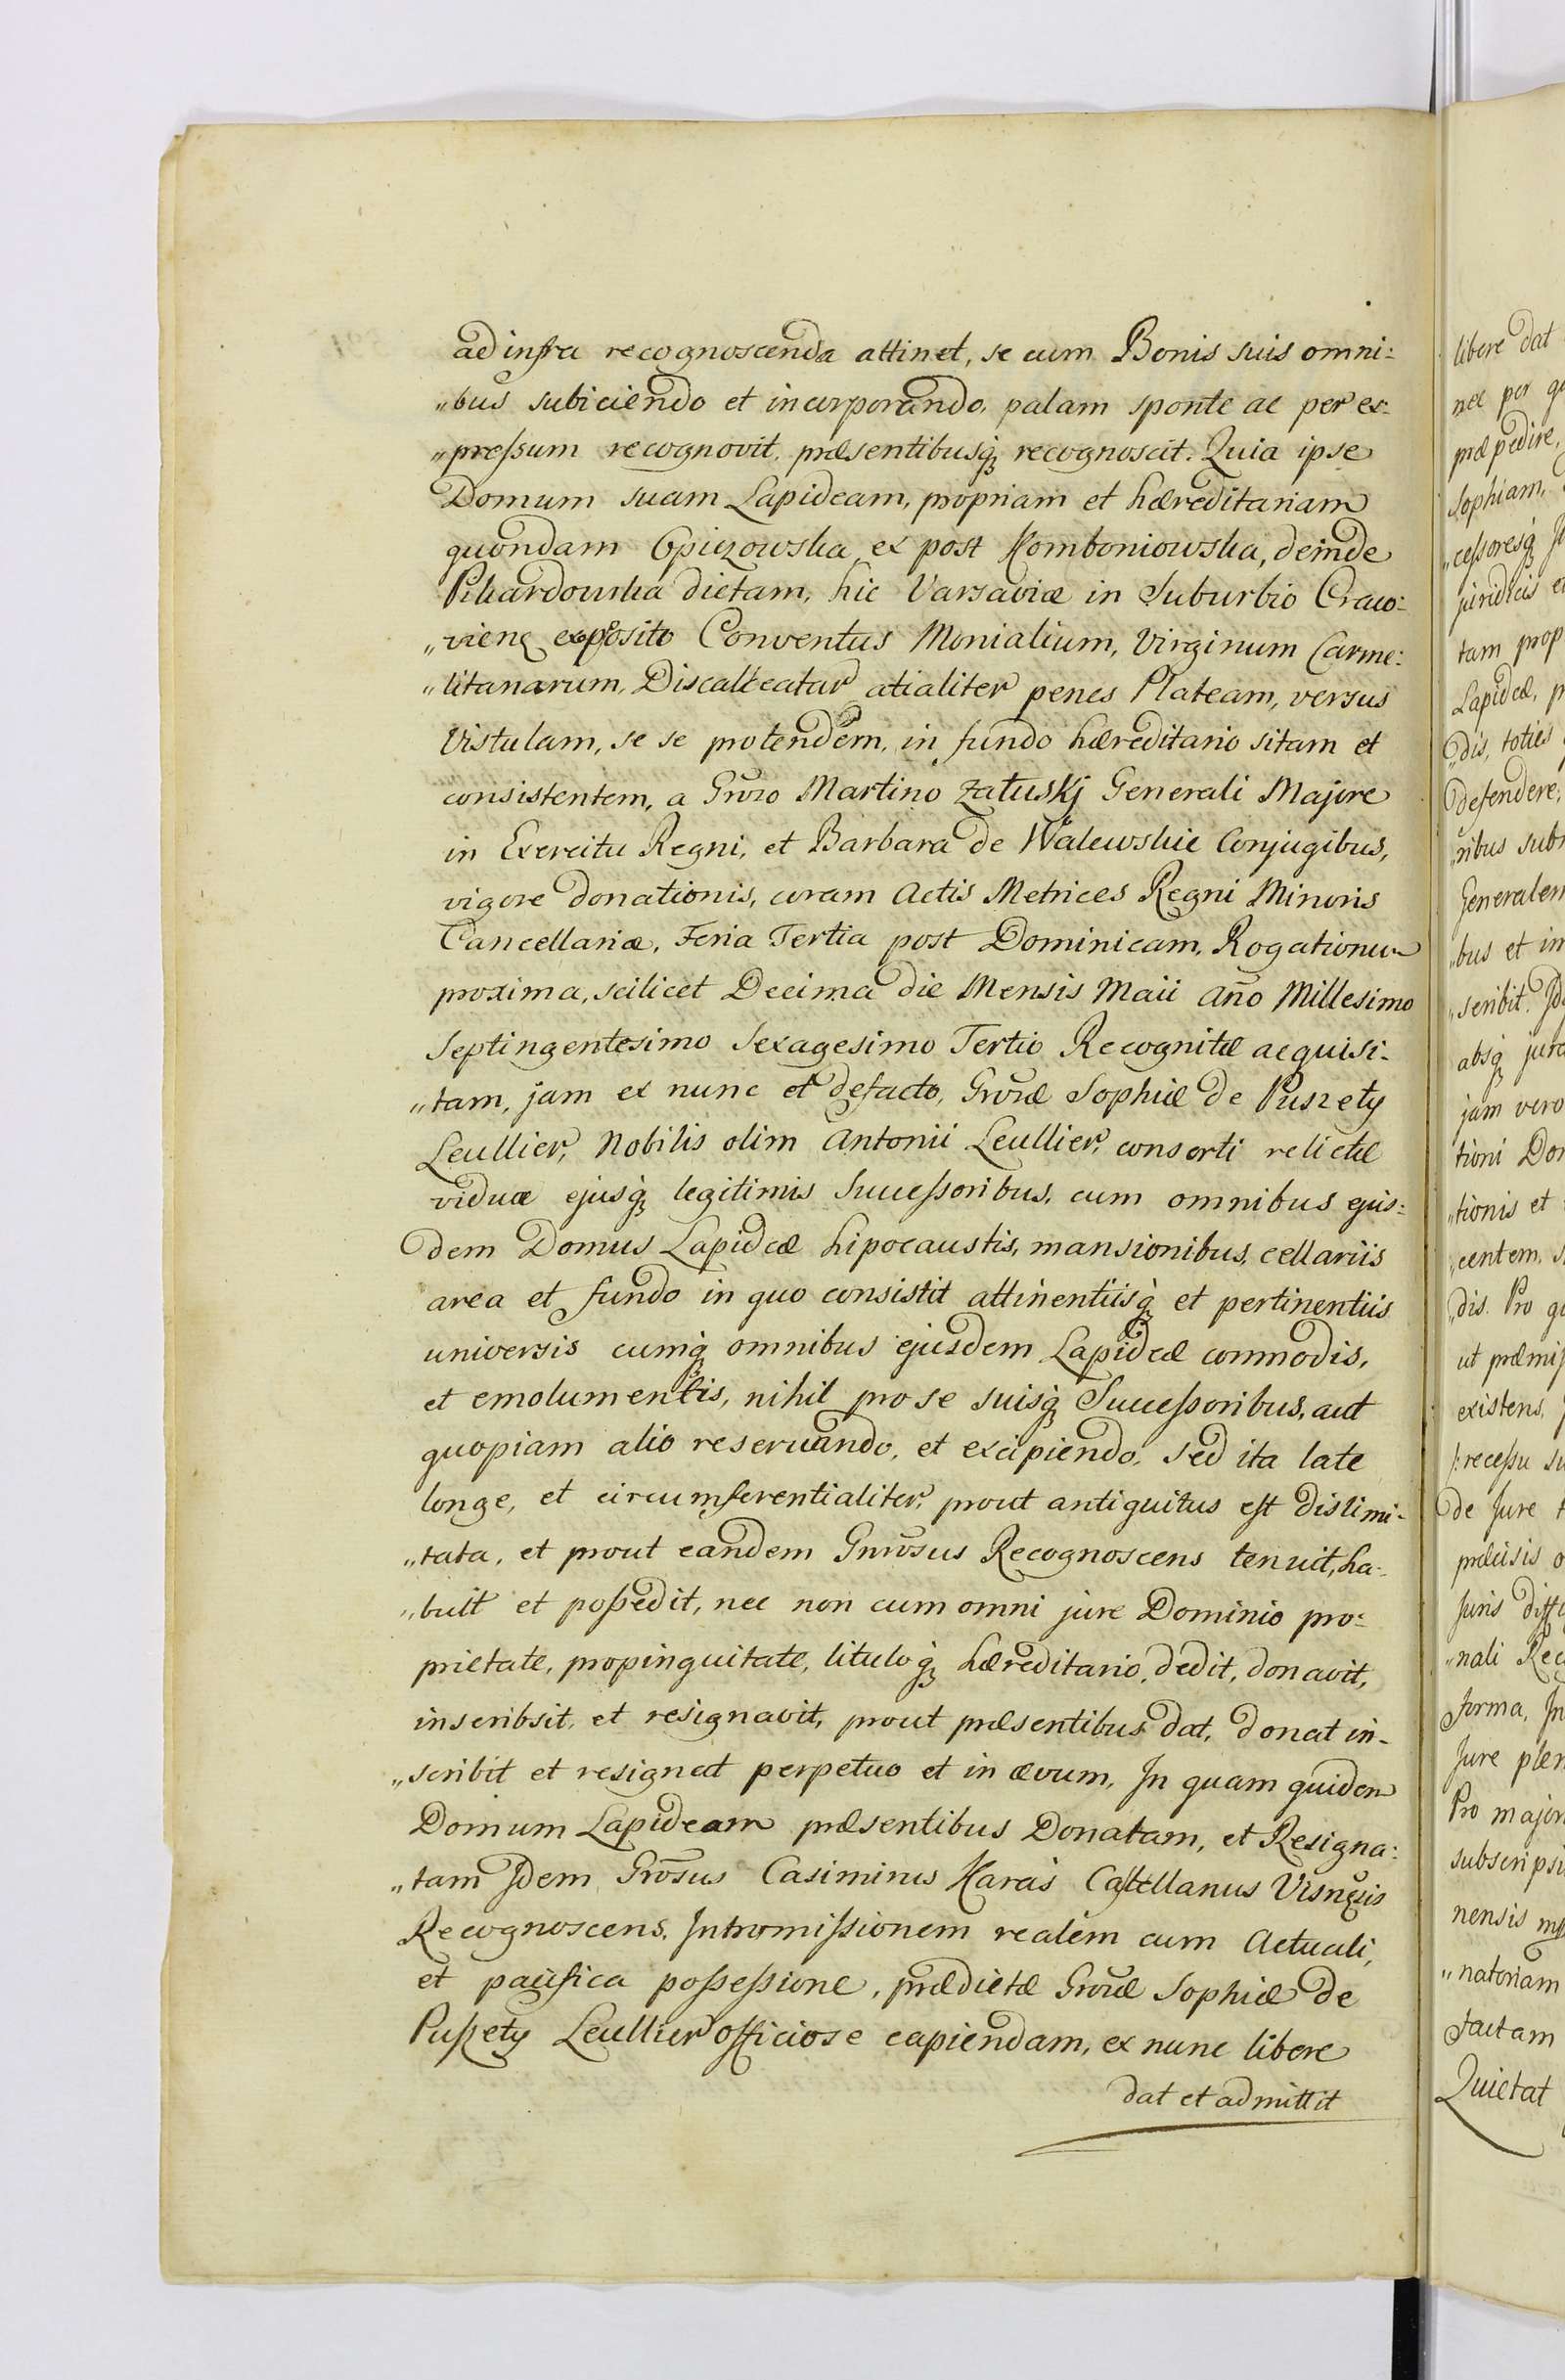 ad infra recognoscenda attinet, se cum Bonis suis omni:
„bus subiciendo et incorporando, palam sponte ac per ex-
„pressum recognovit, præsentibusq; recognoscit. Quia ipse
Domum suam Lapideam, propriam et hæreditariam
quondam Opiczowska ex post Komboniowska, deinde
Pikardowska dictam, hic Varsaviæ in Suburbio Craco:
„vienẽ exposito Conventus Monialium, Virginum Carme:
„litanarum, Discalceatar atialiter penes Plateam, versus
Vistulam, se se protendem, in fundo hæreditario sitam et
consistentem, a Grōzo Martino Załuskj Generali Majore
in Exercitu Regni, et Barbara de Walewskie Conjugibus,
vigore donationis, coram Actis Metrices Regni Minoris
Cancellariæ, Feria Tertia post Dominicam, Rogationum
proxima, scilicet Decima die Mensis Maii Año Millesimo
Septingentesimo Sexagesimo Tertio Recognitæ acquisi-
„tam, jam ex nunc et defacto, Grōzæ Sophiæ de Puszety
Leullier, Nobilis olim Antonii Leullier, consorti relictæ
viduæ ejusq; legitimis Successoribus, cum omnibus ejus:
dem Domus Lapideæ hipocaustis, mansionibus, cellariis
area et fundo in quo consistit attinentiisq; et pertinentiis
universis cumq; omnibus ejusdem Lapideæ commodis,
et emolumentis, nihil pro se suisq; Successoribus, aut
quopiam alio reservando, et excipiendo, sed ita late
longe, et circumferentialiter, prout antiquitus est dislimi-
„tata, et prout eandem Gnrōsus Recognoscens tenuit, ha-
„buit et possedit, nec non cum omni jure Dominio pro:
prietate, propinquitate, tituloq; hæreditario, dedit, donavit,
inscribsit, et resignavit, prout præsentibus dat, donat in-
„scribit et resignat perpetuo et in ævum, In quam quidem
Domum Lapideam præsentibus Donatam, et Resigna:
„tam Idem Grōsus Casimirus Karaś Castellanus Visnẽsis
Recognoscens, Intromissionem realem cum Actuali,
et pacifica possessione, prædictæ Grōzæ Sophiæ de
Puszety Leullier officiose capiendam, ex nunc libere
dat et admittit
libere dat
nec per
præpedire,
Sophiam,
„cessoresq;
juridicis et
tam prop
Lapideæ, p
„dis, toties
defendere,
„ribus subs
Generalem
„bus et in
„scribit.
absq; jura
jam vero
tioni Don
„tionis et
„centem, s
„dis. Pro
ut præmis
existens,
recessu su
de Jure
præcisis
Juris
„nali Rec
forma, In
Jure plen
Pro major
subscripsi
nensis
„natoriam
factam
Quietat